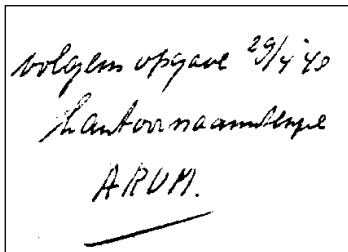 volgens opgave 29/4 '40
kantoornaamstempel
ARUM.